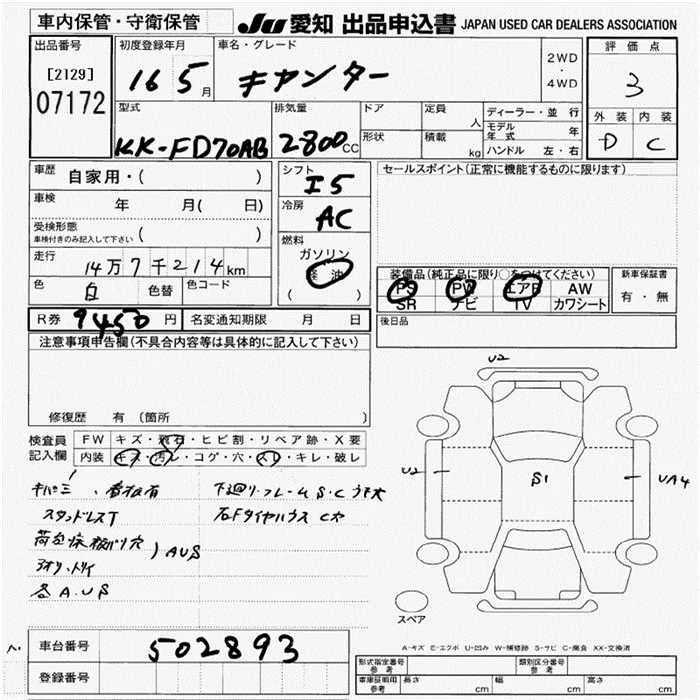 車内保管・守衛保管 JU 愛知 出品申込書 JAPAN USED CAR DEALERS ASSOCIATION
出品番号 初度登録年月 車名・グレード 2WD・4WD 評価点
[2129] 07172 16 5月 キャンター 3
型式 排気量 ドア 定員 人 ディーラー・並行 外装 内装
KK-FD70AB 2800CC 形状 積載 kg モデル年式 年 D C
ハンドル 左・右
車歴 自家用・( ) シフト I5 セールスポイント(正常に機能するものに限ります)
車検 年 月( 日) 冷房 AC
受検形態 車検付きのみ記入して下さい ( )
燃料 ガソリン
走行 14万7千214km 軽油 装備品(純正品に限り○をつけてください) 新車保証書
色 白 色替 色コード ( ) PS PW エアB AW 有・無
SR ナビ TV カワシート
R券 9450円 名変通知期限 月 日 後日品
注意事項申告欄(不具合内容等は具体的に記入して下さい)
U2
修復歴 有(箇所 )
検査員記入欄 FW キズ・飛石・ヒビ割・リペア跡・X要
内装 キズ・汚レ・コゲ・穴・スレ・キレ・破レ
U2 S1 UA4
下廻リ・フレーム S・C
スタッドレスT
A.U.S
各A.U.S
スペア
A-キズ E-エクボ U-凹み W-補修跡 S-サビ C-腐食 XX-交換済
車台番号 502893
登録番号
形式指定番号 参考 類別区分番号 参考
車庫証明用 参考 長さ cm 幅 cm 高さ cm